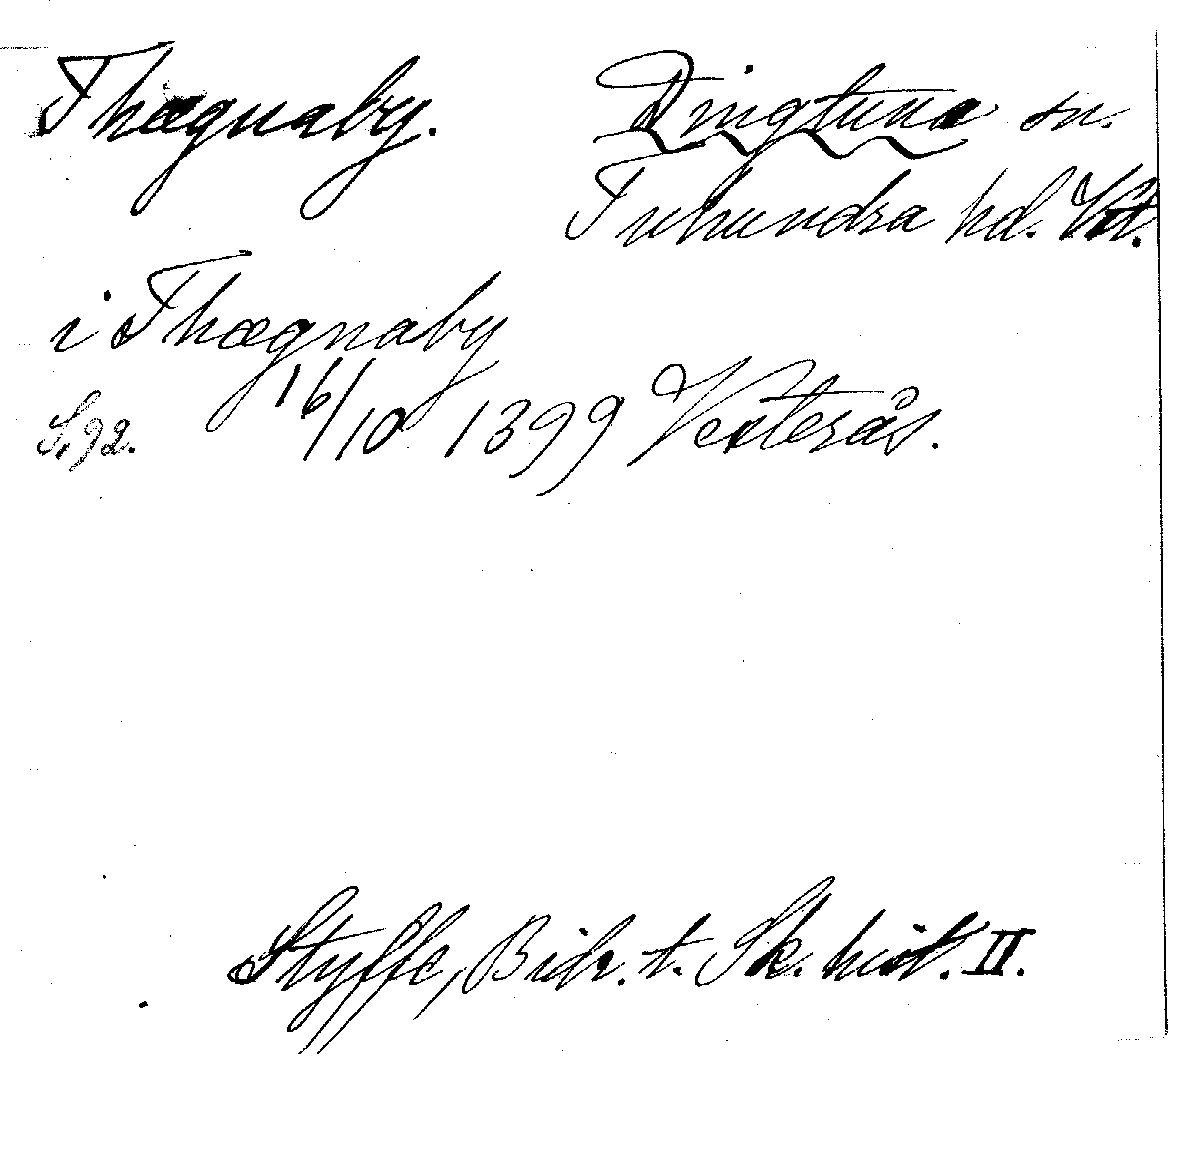 Thægnaby. Dingtuna sn.
Tuhundra hd. Vst.
i Thægnaby
S. 92. 16/10 1399 Vesterås.
Styffe, Bidr. t. Sk. hist. II.